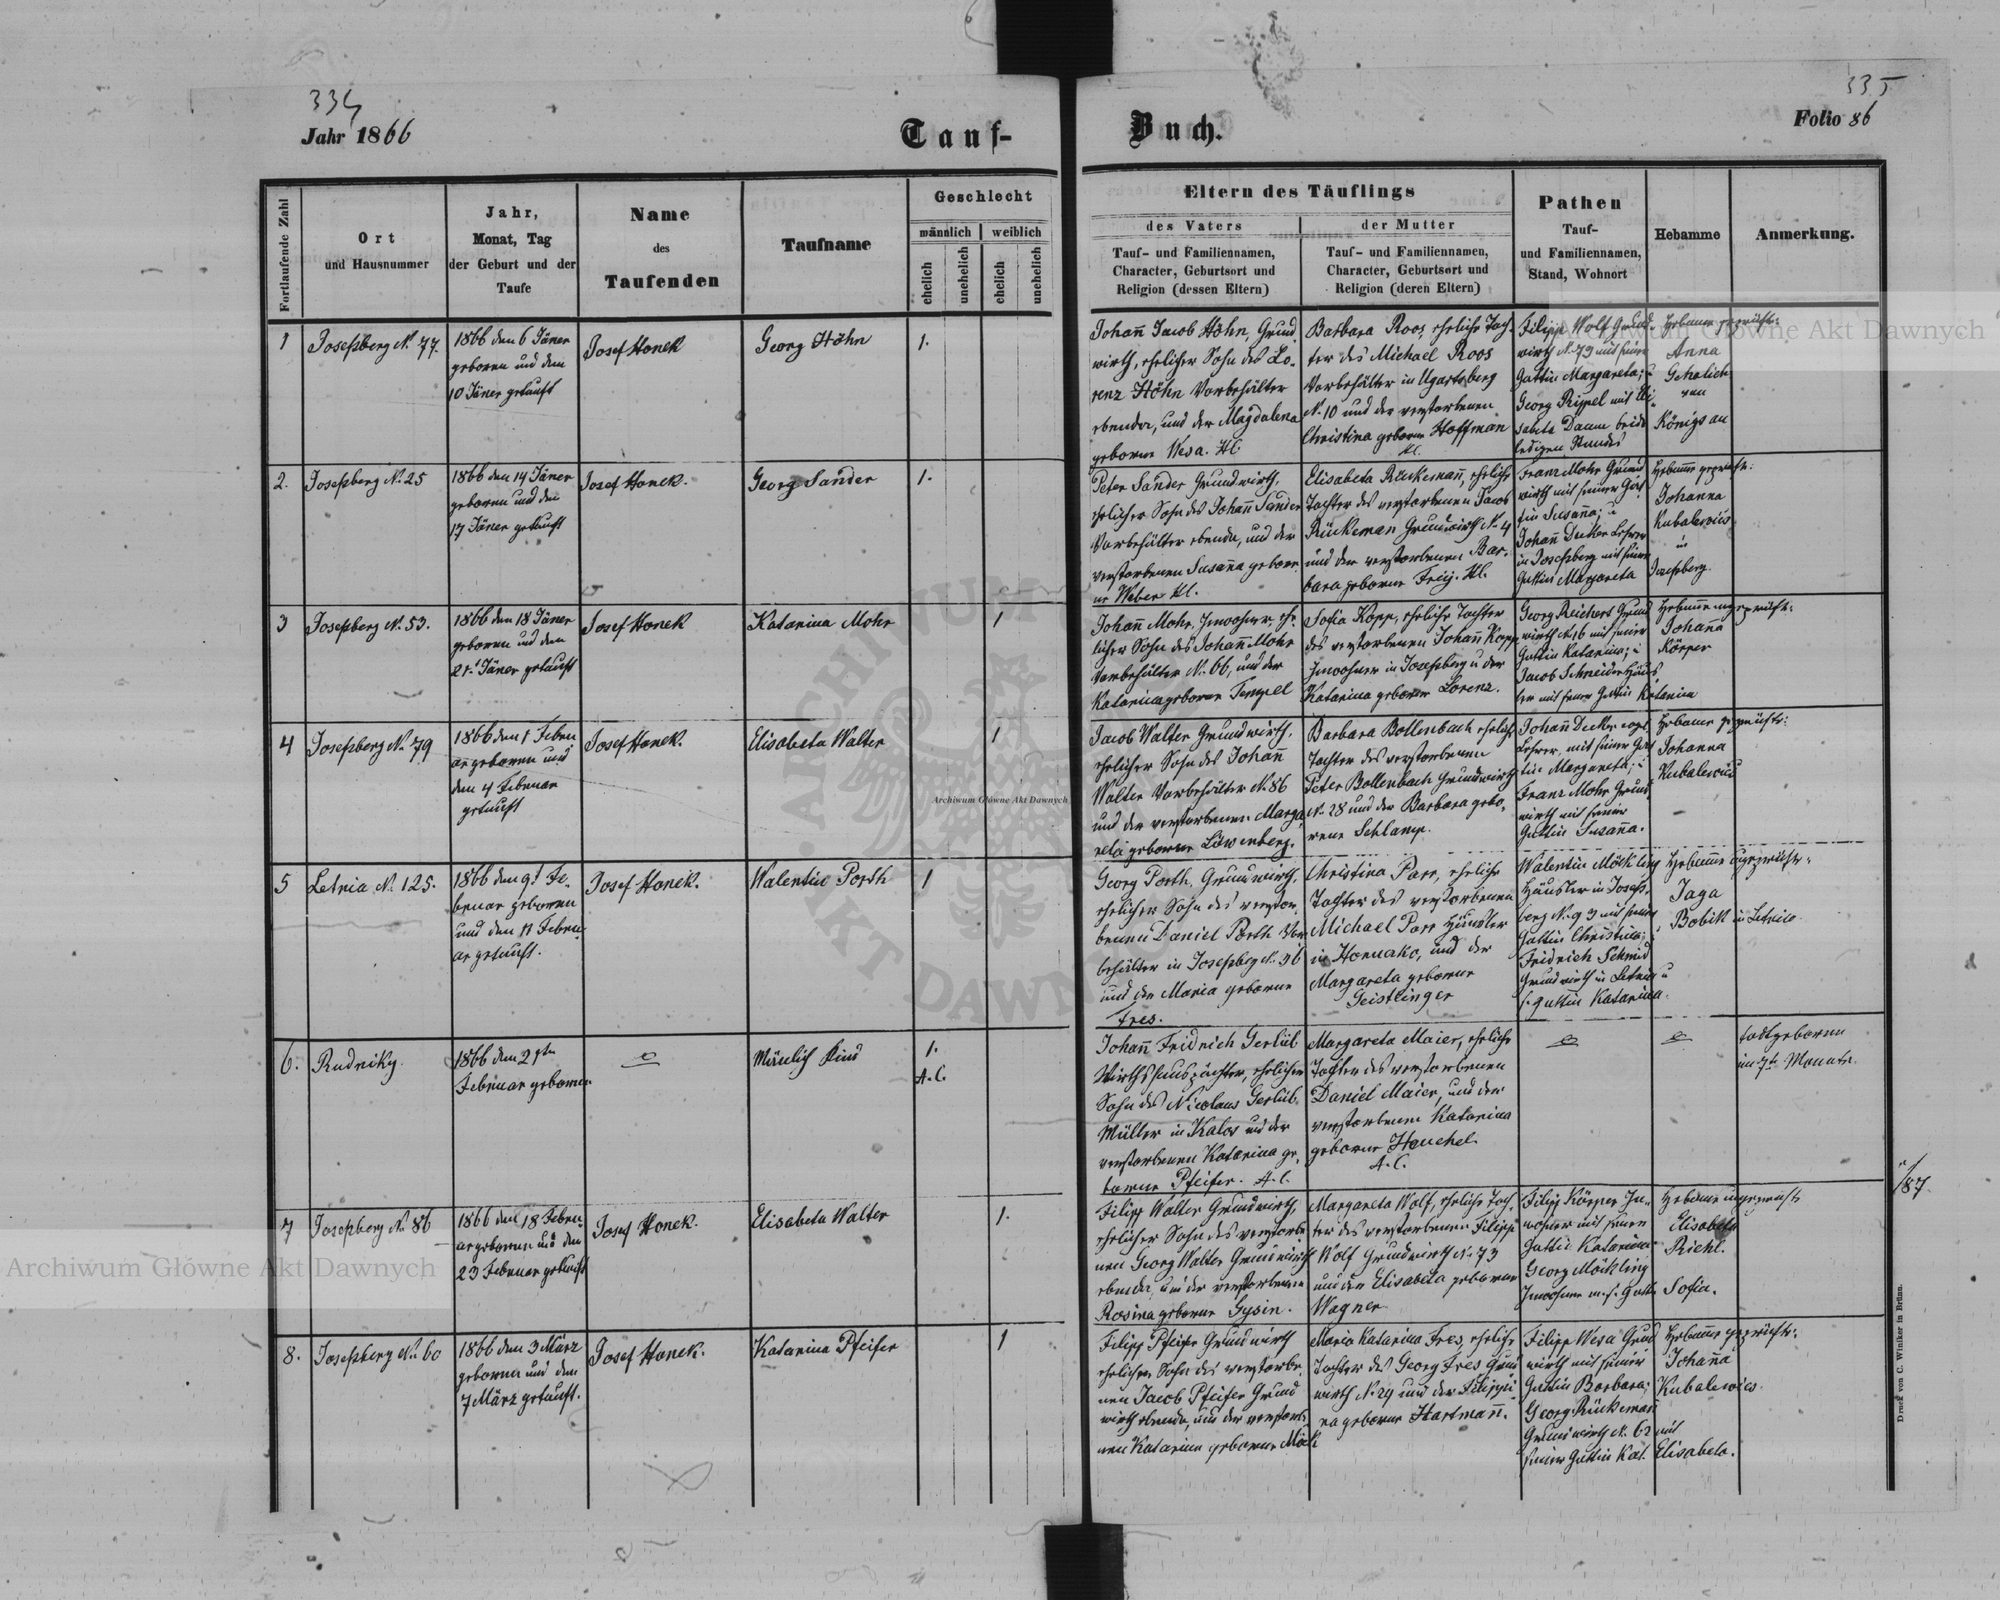 334
335
Jahr 1866
Tauf-
Buch.
Folio 86
Fortlaufende Zahl
Ort
und Hausnummer
Jahr,
Monat, Tag
der Geburt und der
Taufe
Name
des
Taufenden
Taufname
Geschlecht
männlich
weiblich
ehelich
unehelich
ehelich
unehelich
Eltern des Täuflings
des Vaters
Tauf- und Familiennamen,
Character, Geburtsort und
Religion (dessen Eltern)
der Mutter
Tauf- und Familiennamen,
Character, Geburtsort und
Religion (deren Eltern)
Pathen
Tauf-
und Familiennamen,
Stand, Wohnort
Hebamme
Anmerkung.
1
Josefsberg N. 77.
1866 den 6 Jäner
geboren und den
10 Jäner getauft
Josef Honek
Georg Höhn
1.
Johann̄ Jacob Höhn, Grund
wirth, ehelicher Sohn des Lo-
renz Höhn Vorbehälter
ebenda, und der Magdalena
geborne Wesa. H.C.
Barbara Roos, eheliche Toch
ter des Michael Roos
Vorbehälter in Ugartsberg
N. 10 und der verstorbenen
Christina geborne Hoffman
H.C.
Filipp Wolf Grund-
wirth N. 73 mit seiner
Gattin Margareta; u
Georg Rippel mit Eli-
sabeta Daum beide
ledigen Standes
Hebame geprüft:
Anna
Gehalich
von
Königs au
2.
Josefsberg N. 25
1866 den 14 Jäner
geboren und den
17 Jäner getauft
Josef Honek.
Georg Sander
1.
Peter Sander Grundwirth,
ehelicher Sohn des Johann̄ Sander
Vorbehälter ebenda, und der
verstorbenen Susan̄a gebor
ne Weber H.C.
Elisabeta Rückeman̄, eheliche
Tochter des verstorbenen Jacob
Rückeman Grundwirth N. 4
und der verstorbenen Bar-
bara geborne Frey. H.C.
Franz Mohr Grund
wirth mit seiner Gat
tin Susan̄a; u
Johan̄ Decker Lehrer
in Josefsberg mit seiner
Gattin Margareta
Hebam̄e geprüft:
Johanna
Kubalewics
in
Josefsberg.
3
Josefsberg N. 53.
1866 den 18 Jäner
geboren und den
21. Jäner getauft
Josef Honek
Katarina Mohr
1
Johan̄ Mohr, Inwohner, ehe-
licher Sohn des Johan̄ Mohr
Vorbehälter N. 66, und der
Katarina geborne Tempel
Sofia Kopp, eheliche Tochter
des verstorbenen Johan̄ Kopp
Inwohner in Josefsberg u der
Katarina geborne Lorenz.
Georg Reichert Grund
wirth N. 16 mit seiner
Gattin Katarina; u
Jacob Schneider Häus
ler mit seiner Gattin Katarina
Hebam̄e ungeprüft:
Johan̄a
Körper
4
Josefsberg N. 79
1866 den 1 Febru
ar geboren und
den 4 Februar
getauft
Josef Honek.
Elisabeta Walter
1
Jacob Walter Grundwirth,
ehelicher Sohn des Johan̄
Walter Vorbehälter N. 86
und der verstorbenen Marga
reta geborne Löwenberg.
Barbara Bollenbach eheliche
Tochter des verstorbenen
Peter Bollenbach Grundwirth
N. 28 und der Barbara gebo,
rene Schlamp.
Johan̄ Decker evgl.
Lehrer, mit seiner Gat
tin Margareta; u
Franz Mohr Grund
wirth mit seiner
Gattin Susan̄a.
Hebame geprüft:
Johanna
Kubalewics
5
Letnia N. 125.
1866 den 9t Fe-
bruar geboren
und den 11 Febru
ar getauft.
Josef Honek.
Walentin Porth
1
Georg Porth, Grundwirth,
ehelicher Sohn des verstor
benen Daniel Porth Vor
behälter in Josefsberg N. 36
und der Maria geborne
Fres.
Christina Parr, eheliche
Tochter des verstorbenen
Michael Parr Häusler
in Horucko, und der
Margareta geborne
Geistlinger
Walentin Möckling
Häusler in Josefs,
berg N. 93 mit seiner
Gattin Christina; u
Fridrich Schmid
Grundwirth in Letnia u
s. Gattin Katarina.
Hebam̄e ungeprüft:
Jaga
Bobik in Letnia
6.
Rudniky.
1866 den 2ten
Februar geboren
Mänlich Kind
1.
A.C.
Johan̄ Fridrich Gerlieb
Wirthshauspächter, ehelicher
Sohn des Nicolaus Gerlieb
Müller in Kalos und der
verstorbenen Katarina ge,
borne Pfeifer. A.C.
Margareta Maier, eheliche
Tochter des verstorbenen
Daniel Maier, und der
verstorbenen Katarina
geborne Hauchel.
A.C.
todtgeboren
im 7ten Monate.
7
Josefsberg N. 86
1866 den 18 Febru,
ar geboren und den
23 Februar getauft
Josef Honek.
Elisabeta Walter
1.
Filipp Walter Grundwirth,
ehelicher Sohn des verstorbe
nen Georg Walter Grundwirth
ebenda, und der verstorbenen
Rosina geborne Gysin.
Margareta Wolf, eheliche Toch,
ter des verstorbenen Filipp
Wolf Grundwirth N. 73
und der Elisabeta geborne
Wagner
Filipp Körper In-
wohner mit seiner
Gattin Katarina
Georg Möckling
Inwohner m. s. Gatt. Sofia.
Hebame ungeprüft
Elisabeta
Richl.
1/87.
8.
Josefsberg N. 60
1866 den 3 März
geboren und den
7 März getauft.
Josef Honek.
Katarina Pfeifer
1
Filipp Pfeifer Grundwirth
ehelicher Sohn des verstorbe
nen Jacob Pfeifer Grund
wirth ebenda, und der verstorbe
nen Katarina geborne Möck
Maria Katarina Fres, eheliche
Tochter des Georg Fres Grund
wirth N. 29 und der Filippi
na geborne Hartman̄.
Filipp Wesa Grund
wirth mit seiner
Gattin Barbara;
Georg Rückeman̄
Grundwirth N. 62 mit
seiner Gattin Kat. Elisabeta.
Hebam̄e geprüft:
Johan̄a
Kubalewics.
Druck von C. Winiker in Brünn.
Archiwum Główne Akt Dawnych
Archiwum Główne Akt Dawnych
Archiwum Główne Akt Dawnych
ARCHIWUM
AKT DAWN